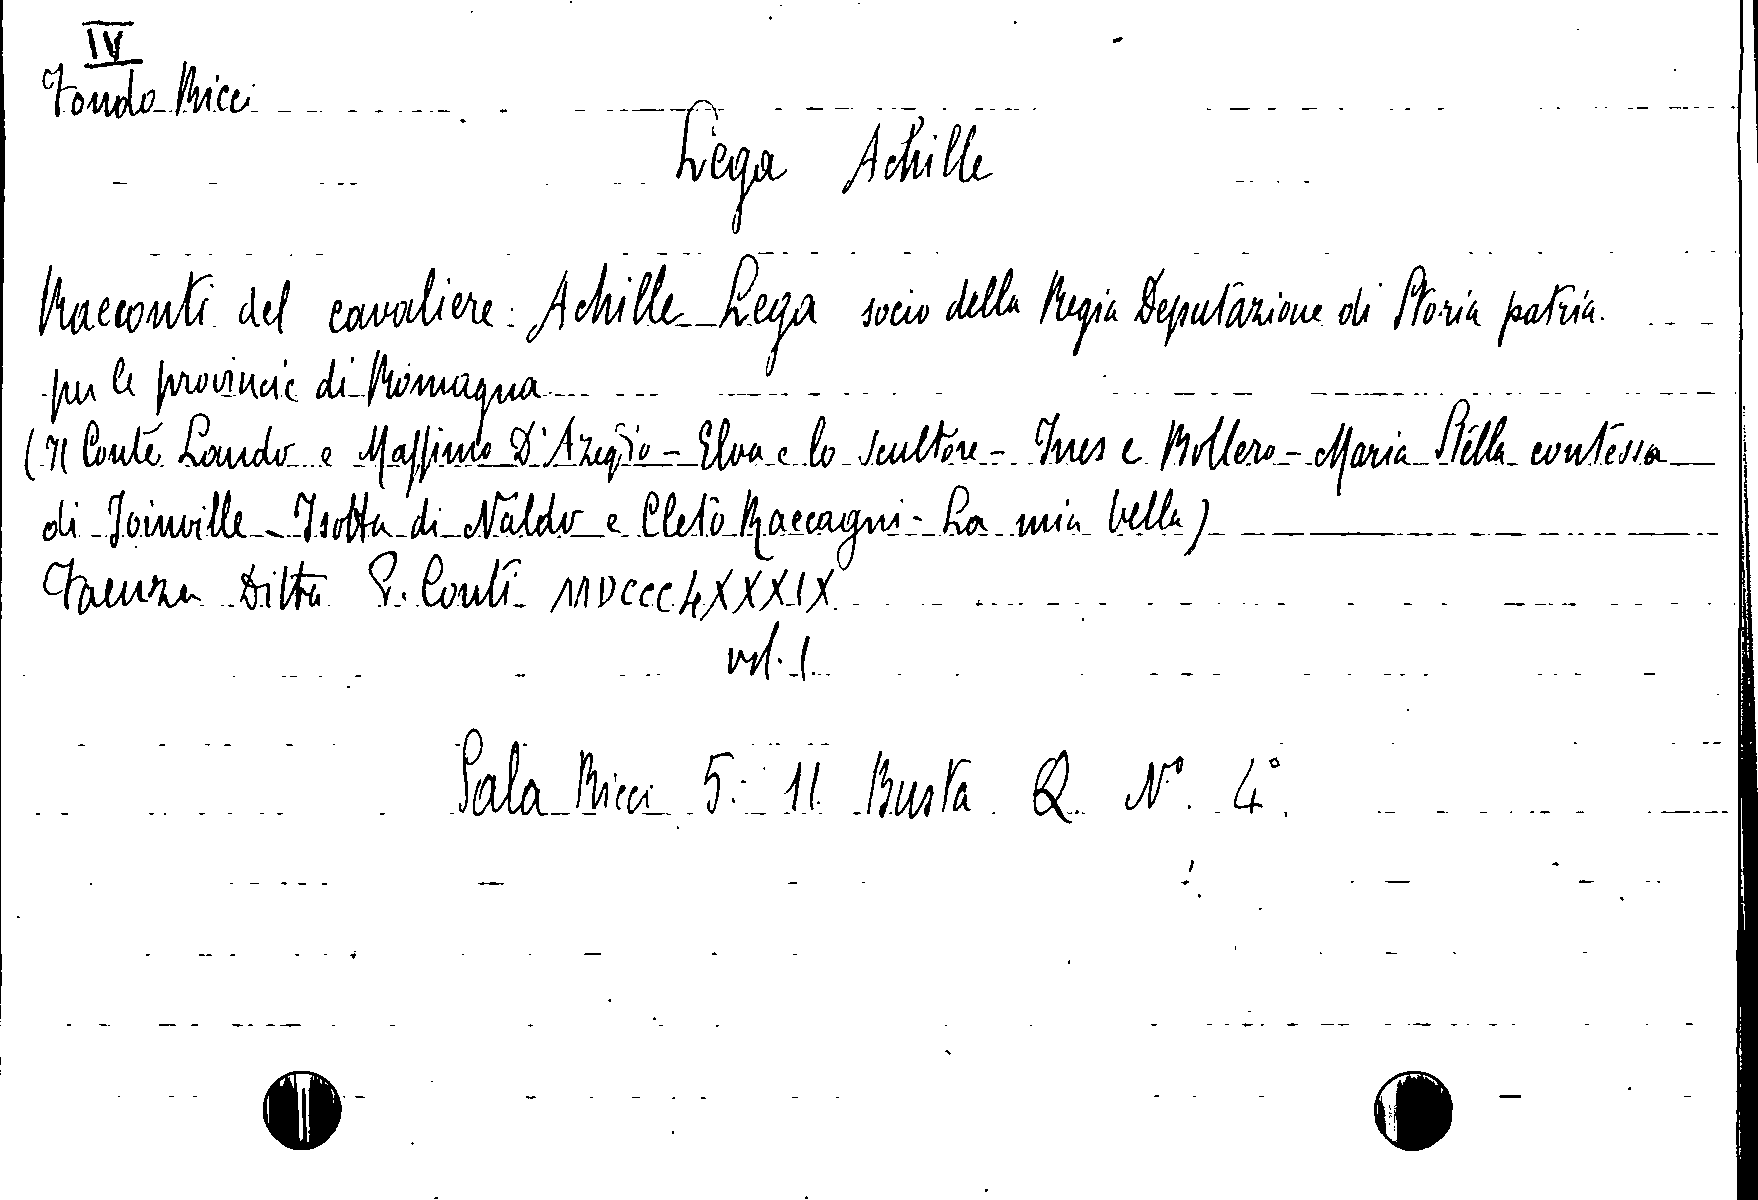 IV
Fondo Ricci
Lega Achille
Racconti del cavaliere Achille Lega socio della Regia Deputazione di Storia patria
per le provincie di Romagna
(Il Conte Lando e Massimo D'Azeglio - Elva e lo scultore - Ines e Bollero - Maria Stella contessa
di Joinville - Isotta di Naldo e Cleto Raccagni - La mia bella)
Faenza Ditta P. Conti MDCCCLXXXIX
vol. 1
Sala Ricci 5: 11 Busta Q N° 4°